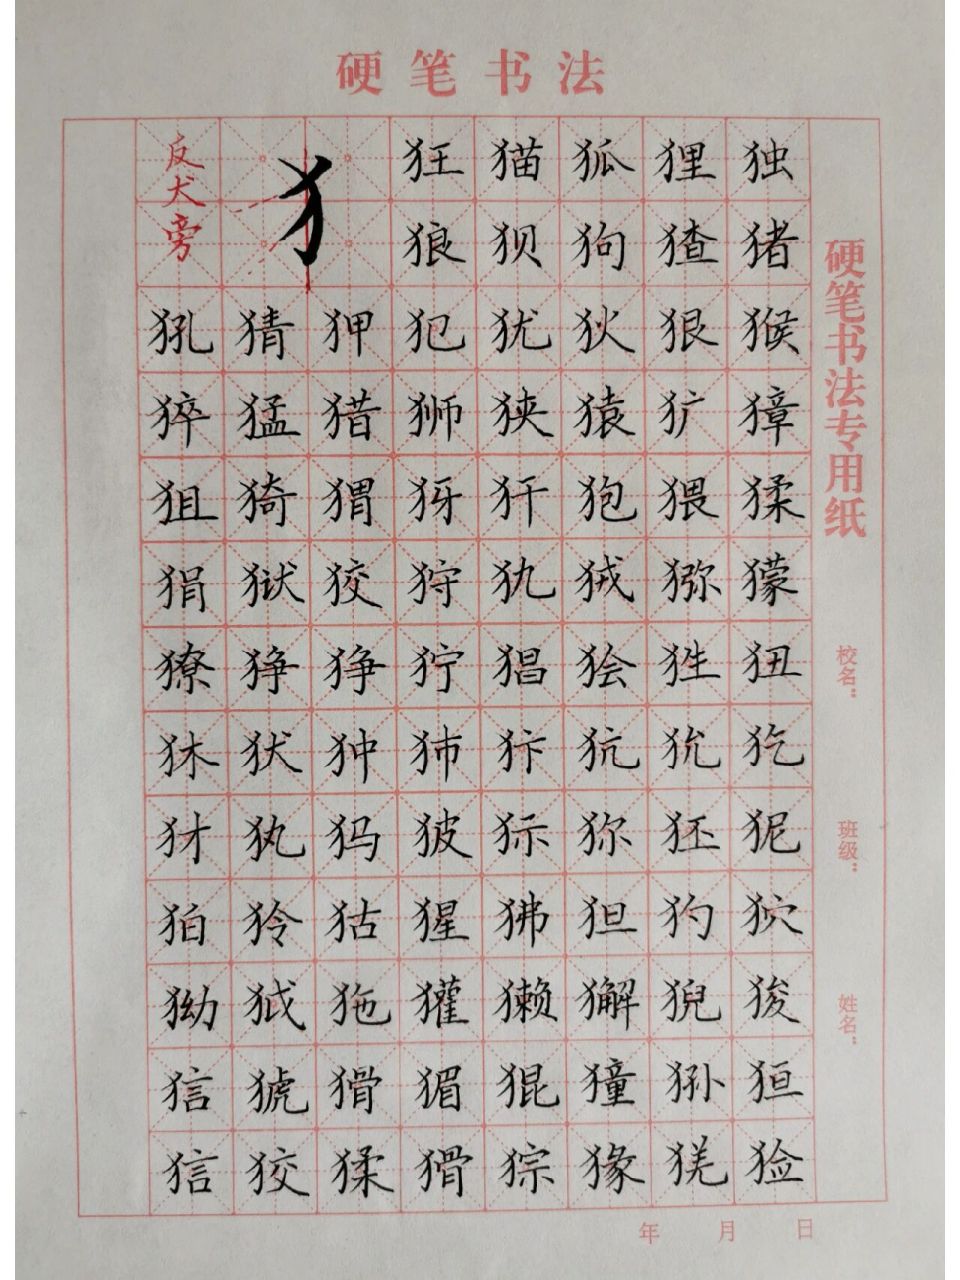 硬笔书法
反犬旁
犭
狂猫狐狸独
狼狈狗猹猪
犼猜狎犯犹狄狠猴
猝猛猎狮狭猿犷獐
狙猗猬犽犴狍猥猱
狷狱狡狩犰狨猕獴
獠狰狰狞猖狯狌狃
狇狀狆犻犿犺狁犵
犲犱犸狓狋狝狉狔
狛狑狜猩狒狚犳狖
狕狘狏獾獭獬猊狻
狺猇猾猸猑獞狲狟
狺狡猱猾猔猭羌猃
硬笔书法专用纸
校名：
班级：
姓名：
年 月 日